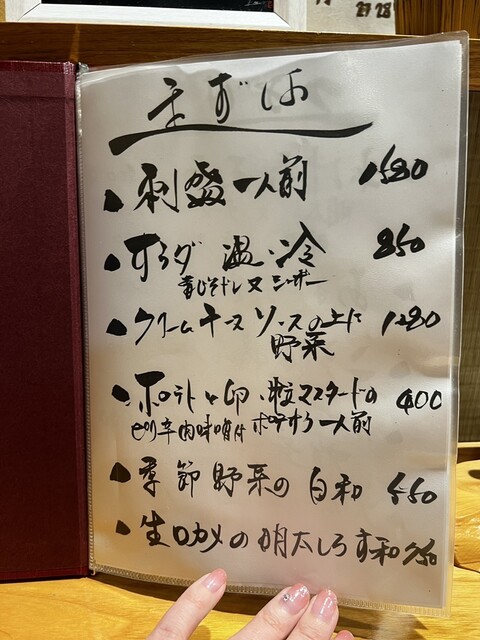 27 28
まずは
刺盛一人前 1580
サラダ 温・冷 850
青じそドレ又シーザー
クリームチーズソースの上に 1280
野菜
ポテトと卵・粒マスタードの 400
ピリ辛肉味噌付 ポテサラ一人前
季節野菜の白和 550
生ワカメの明太しろす和 750